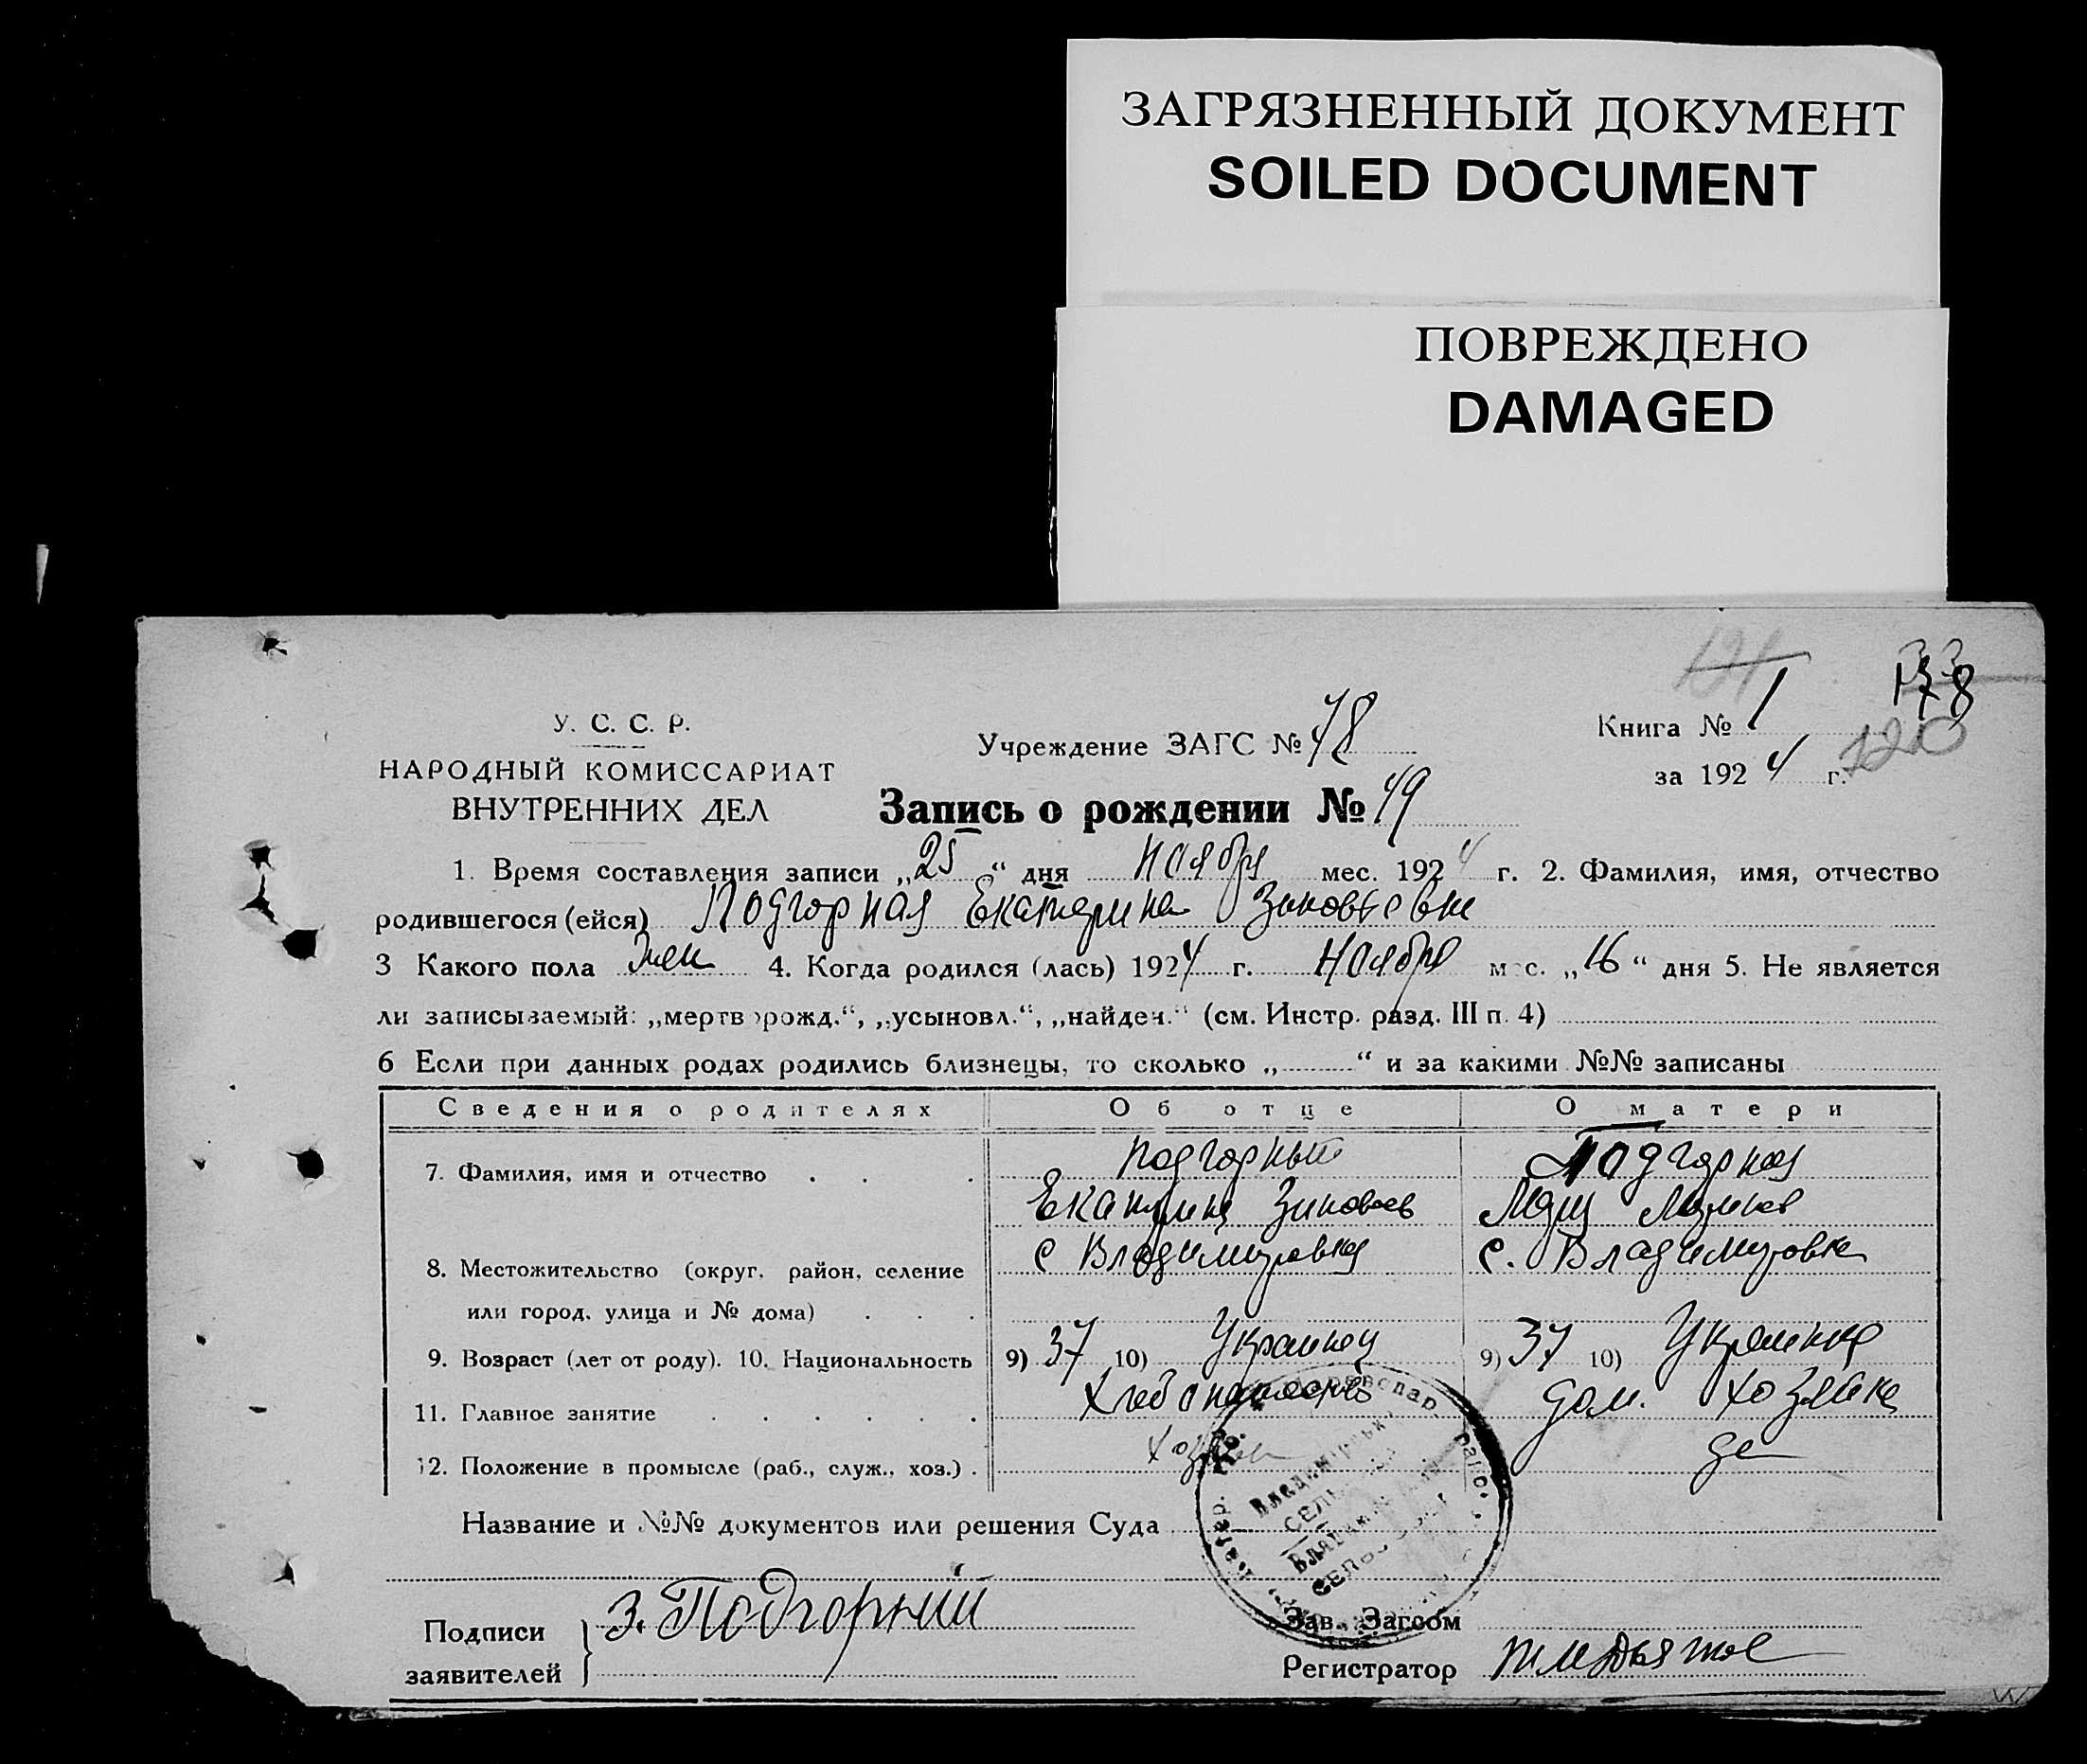 ЗАГРЯЗНЕННЫЙ ДОКУМЕНТ
SOILED DOCUMENT
ПОВРЕЖДЕНО
DAMAGED
У. С. С. Р.
НАРОДНЫЙ КОМИССАРИАТ
ВНУТРЕННИХ ДЕЛ
Учреждение ЗАГС № 48
Книга № 1
за 1924 г.
120
Запись о рождении № 49
1. Время составления записи „25“ дня Ноября мес. 1924 г. 2. Фамилия, имя, отчество
родившегося (ейся) Подгорная Екатерина Зиновьевна
3 Какого пола жен 4. Когда родился (лась) 1924 г. Ноября мес. „16“ дня 5. Не является
ли записываемый: „мертворожд.“, „усыновл.“, „найден.“ (см. Инстр. разд. III п. 4)
6 Если при данных родах родились близнецы, то сколько „ “ и за какими №№ записаны
Сведения о родителях Об отце О матери
7. Фамилия, имя и отчество Подгорный Подгорная
Екатерина Зиновьев
8. Местожительство (округ, район, селение с Владимировка с. Владимировка
или город, улица и № дома)
9. Возраст (лет от роду). 10. Национальность 9) 37 10) Украинец 9) 37 10) Украинка
11. Главное занятие Хлебопашество дом. хозяйка
12. Положение в промысле (раб., служ., хоз.) хозяин
Название и №№ документов или решения Суда
Подписи
заявителей
З. Подгорний
Зав. Загсом
Регистратор